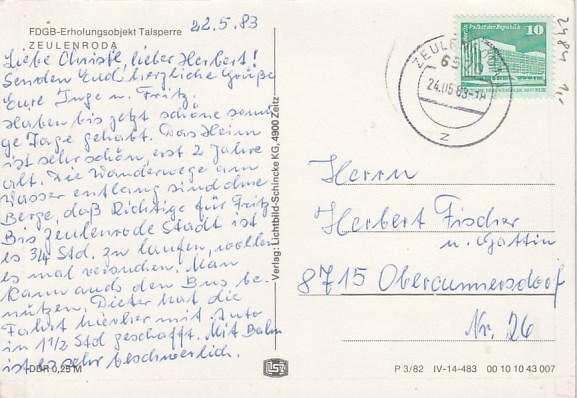 FDGB-Erholungsobjekt Talsperre
ZEULENRODA
22.5.83
Liebe Christl, lieber Herbert!
Senden Euch herzliche Grüße
Eure Inge u. Fritz.
Haben bis jetzt schöne sonni-
ge Tage gehabt. Das Heim
ist sehr schön, erst 2 Jahre
alt. Die Wanderwege am
Wasser entlang sind ohne
Berge, daß Richtige für Fritz
Bis Zeulenroda Stadt ist
es 3/4 Std. zu laufen, wollen
es mal versuchen. Man
kann auch den Bus be-
nützen. Dieter hat die
Fahrt hierher mit Auto
in 1 1/2 Std geschafft. Mit Bahn
ist es sehr beschwerlich.
DDR 0,25 M
Verlag: Lichtbild-Schincke KG, 4900 Zeitz
Palast der Republik
10
ZEULENRODA
24.05.83
z
2484
Herrn
Herbert Fischer
u. Gattin
8715 Obercunnersdorf
Nr. 26
P 3/82 IV-14-483 00 10 10 43 007